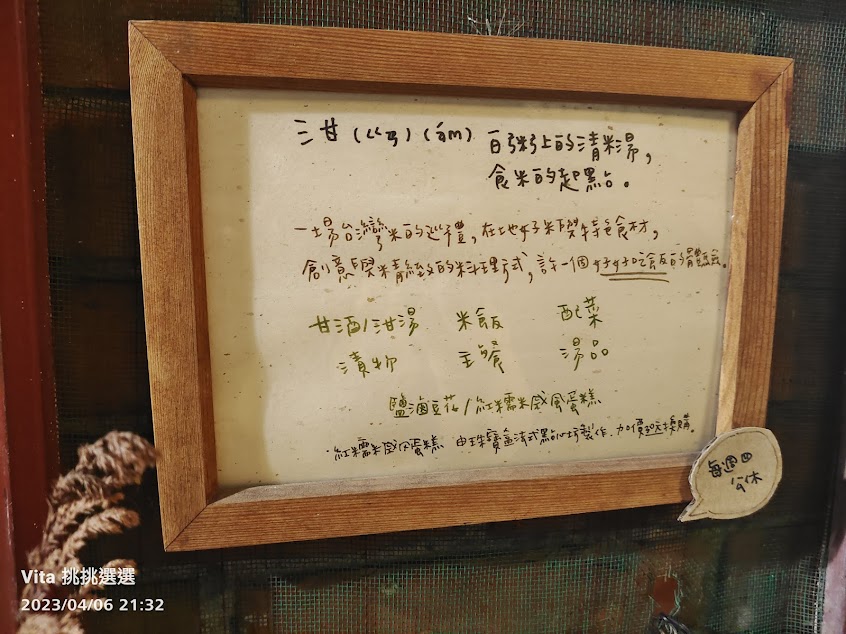 泔(ㄍㄢ)(ám) 白粥上的清米湯,
食米的起點。
一場台灣米的巡禮,在地好米與特色食材,
創意與精緻的料理式,許一個好好吃飯的體驗。
甘酒/泔湯 米飯 配菜
漬物 主餐 湯品
鹽滷豆花/紅糯米戚風蛋糕
紅糯米戚風蛋糕 由珠寶盒法式點心坊製作,加價30元換購。
每週四
公休
Vita 挑挑選選
2023/04/06 21:32